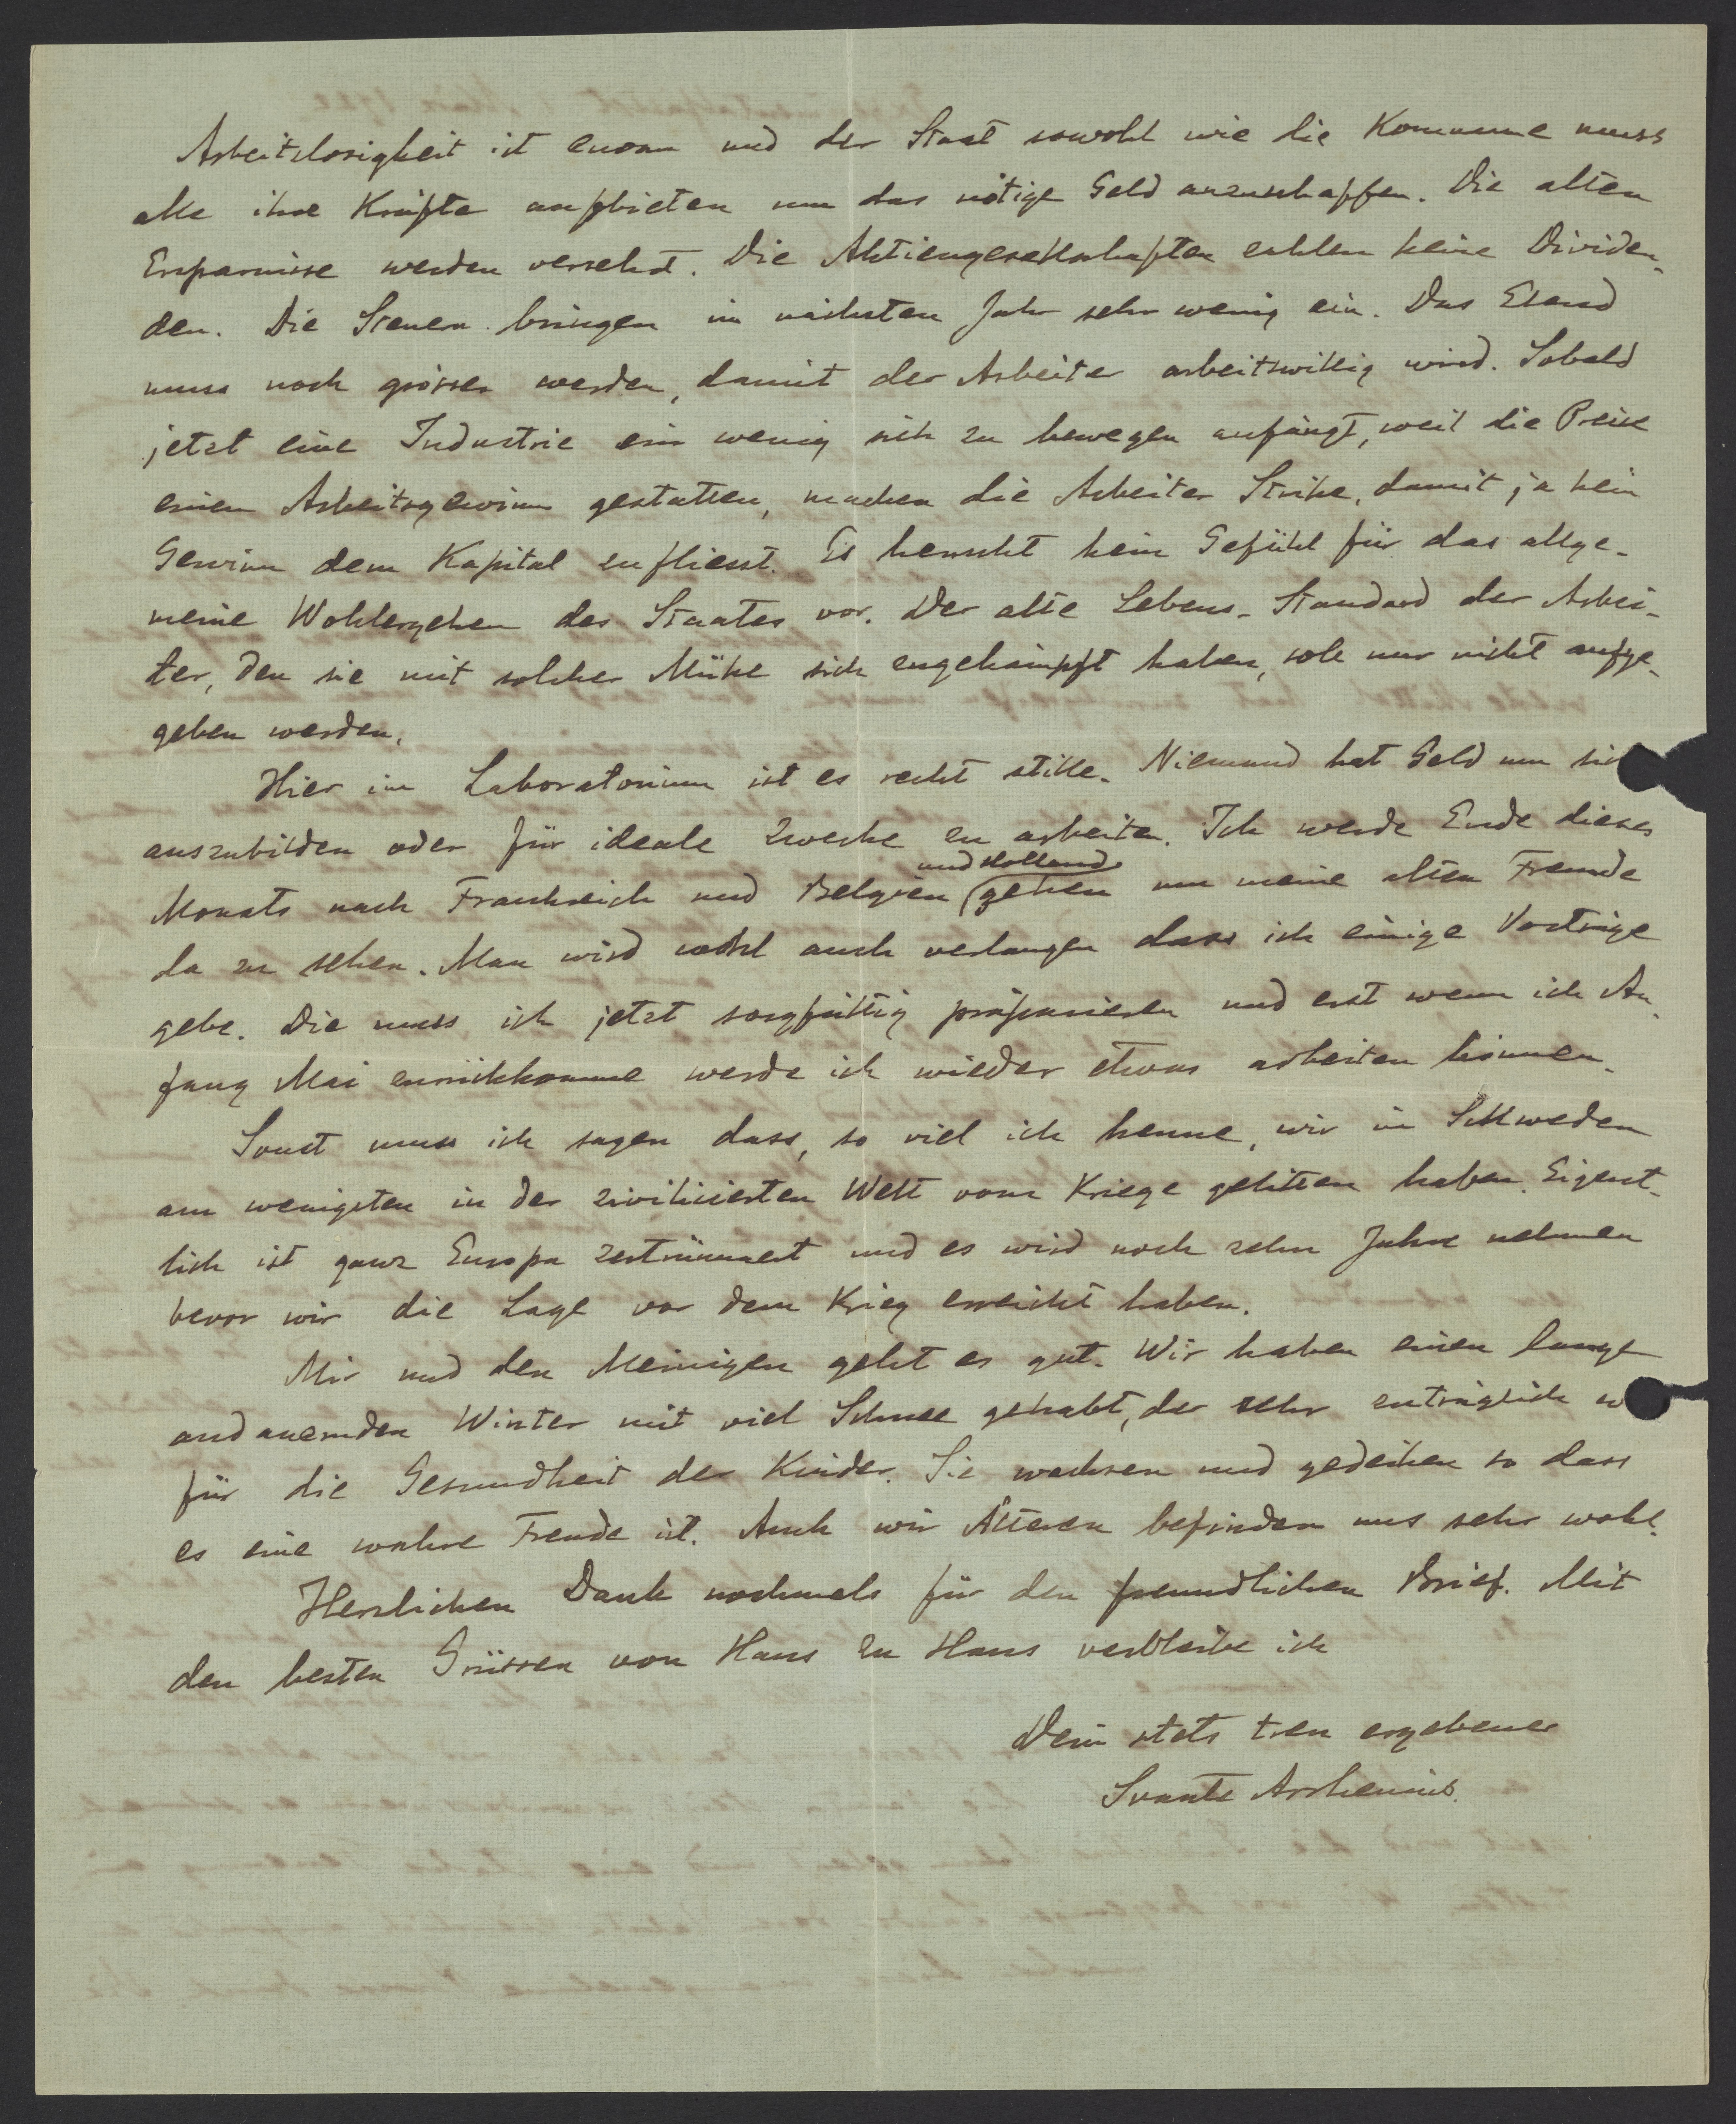 Arbeitslosigkeit ist enorm und der Staat sowohl wie die Kommune muss
alle ihre Kräfte aufbieten um das nötige Geld anzuschaffen. Die alten
Ersparnisse werden verzehrt. Die Aktiengesellschaften zahlen keine Dividen-
den. Die Steuern bringen im nächsten Jahr sehr wenig ein. Das Elend
muss noch grösser werden, damit der Arbeiter arbeitswillig wird. Sobald
jetzt eine Industrie ein wenig sich zu bewegen anfängt, weil die Preise
einen Arbeitsgewinn gestatten, machen die Arbeiter Strike, damit ja kein
Gewinn dem Kapital zufliesst. Es herrscht kein Gefühl für das allge-
meine Wohlergehen des Staates vor. Der alte Lebens-Standard der Arbei-
ter, den sie mit solcher Mühe sich zugekämpft haben, soll nur nicht aufge-
geben werden.
Hier im Laboratorium ist es recht stille. Niemand hat Geld um sich
auszubilden oder für ideale Zwecke zu arbeiten. Ich werde Ende dieses
Monats nach Frankreich und Belgien und Holland gehen um meine alten Freunde
da zu sehen. Man wird wohl auch verlangen dass ich einige Vorträge
gebe. Die muss ich jetzt sorgfältig präparieren und erst wenn ich An-
fang Mai zurückkomme werde ich wieder etwas arbeiten können.
Sonst muss ich sagen dass, so viel ich kenne, wir in Schweden
am wenigsten in der zivilisierten Welt vom Kriege gelitten haben. Eigent-
lich ist ganz Europa zertrümmert und es wird noch zehn Jahre nehmen
bevor wir die Lage vor dem Krieg erreicht haben.
Mir und den Meinigen geht es gut. Wir haben einen lange
andauernden Winter mit viel Schnee gehabt, der sehr zuträglich w
für die Gesundheit der Kinder. Sie wachsen und gedeihen so dass
es eine wahre Freude ist. Auch wir Älteren befinden uns sehr wohl.
Herzlichen Dank nochmals für den freundlichen Brief. Mit
den besten Grüssen von Haus zu Haus verbleibe ich
Dein stets treu ergebener
Svante Arrhenius.